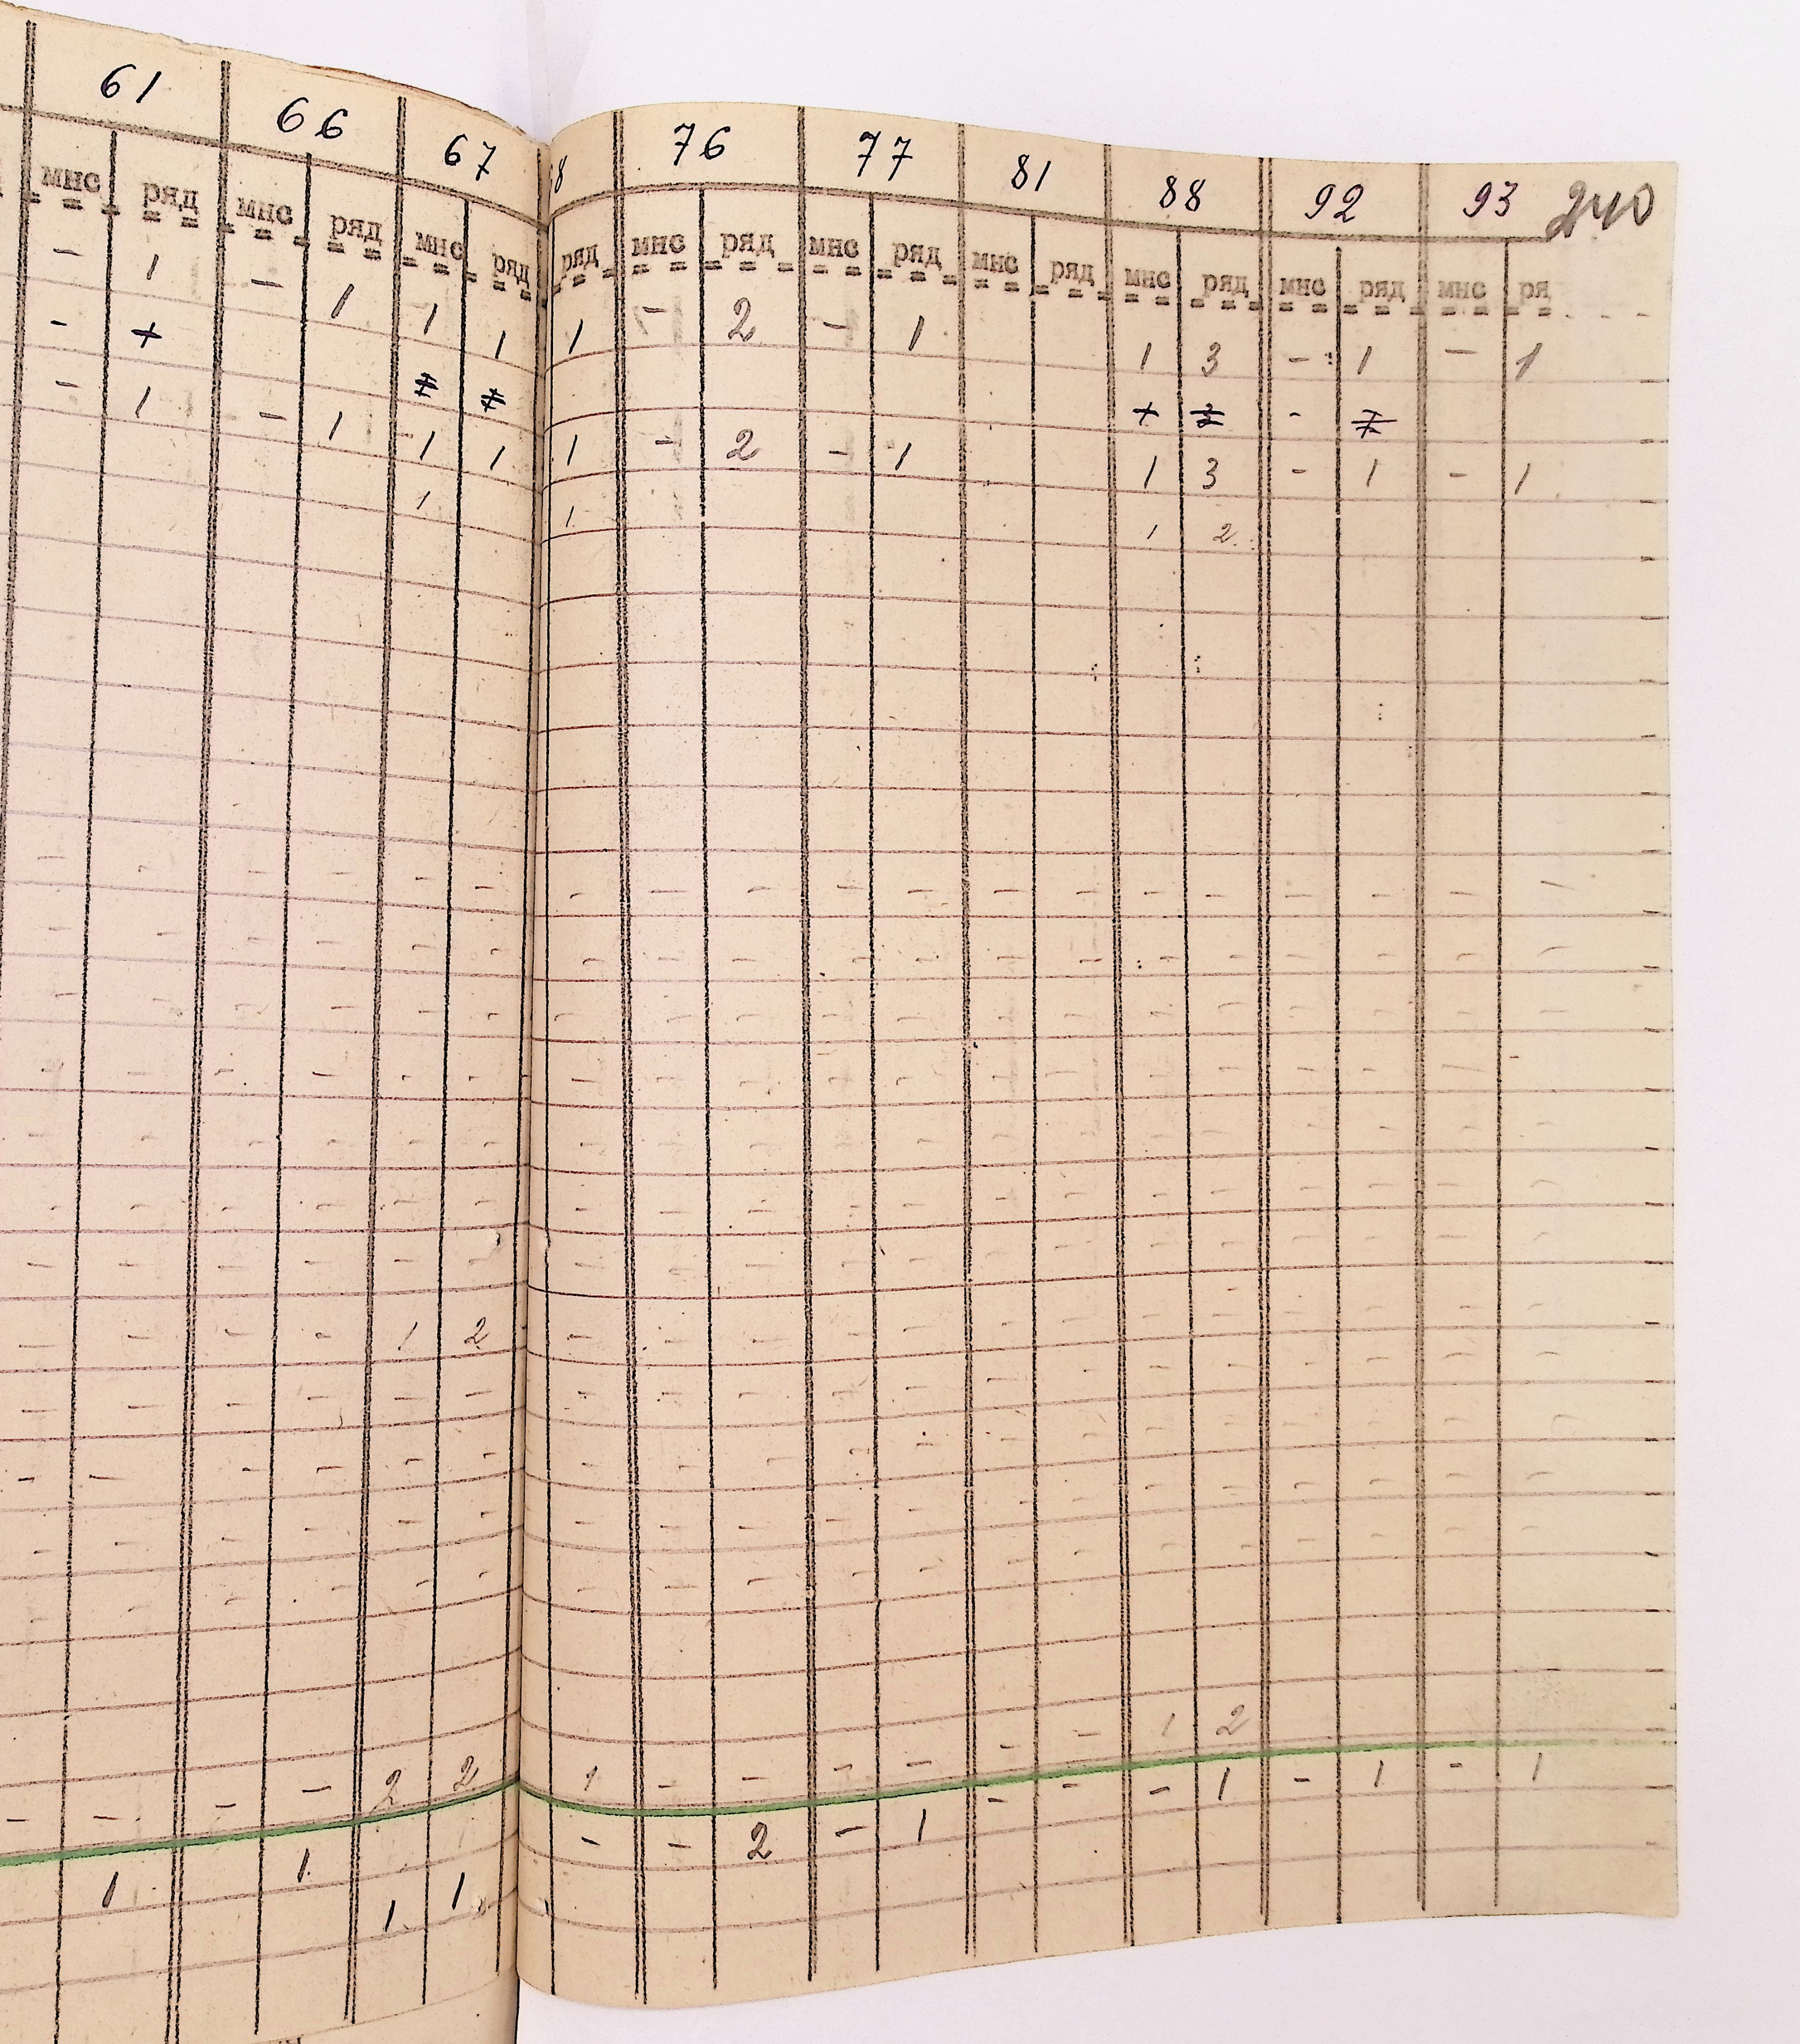 61 66 67 8 76 77 81 88 92 93 240
мнс ряд мнс ряд мнс ряд ряд мнс ряд мнс ряд мнс ряд мнс ряд мнс ряд мнс ря
- 1 - 1 1 1 1 - 2 - 1 1 3 - 1 - 1
- - -
- 1 - 1 1 1 1 - 2 - 1 1 3 - 1 - 1
1 1 1 2
- - - - - - - - - - - - - - - - - - -
- - - - - - - - - - - - - - - - - - -
- - - - - - - - - - - - - - - - - - -
- - - - - - - - - - - - - - - - - -
- - - - - - - - - - - - - - - - - - -
- - - - - - - - - - - - - - - - - - -
- - - - - - - - - - - - - - - - - - -
- - - - 1 2 - - - - - - - - - - - - -
- - - - - - - - - - - - - - - - - - -
- - - - - - - - - - - - - - - - - - -
- - - - - - - - - - - - - - - - - - -
- - - - - - - - - - - - - - - - - - -
- - - - 2 2 1 - - - - - - 1 2
1 1 1 1 - - 2 - 1 - - - 1 - 1 - 1